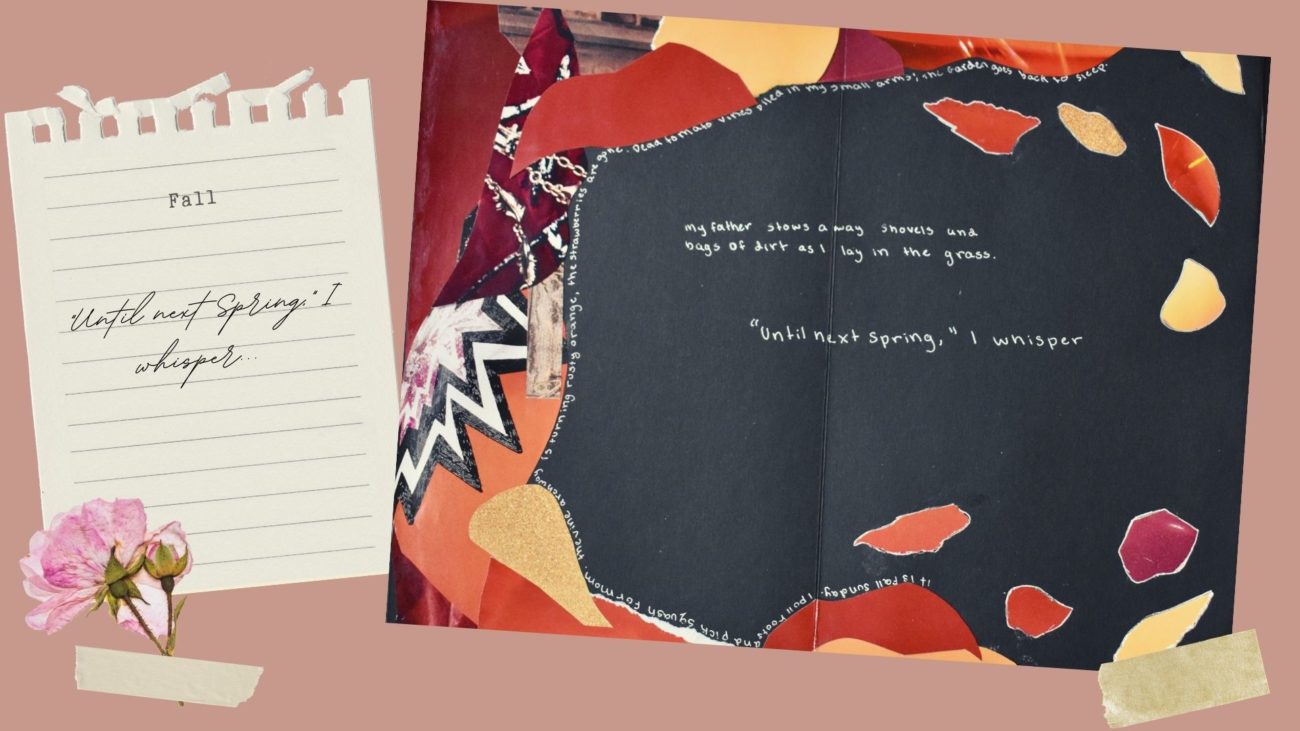 Fall
"Until next Spring," I
whisper...
It is Fall Sunday. I pull roots and pick squash for mom. the vine archway is turning rusty orange, the strawberries are gone. Dead tomato vines piled in my small arms; the Garden goes back to sleep.
my father stows away shovels and
bags of dirt as I lay in the grass.
"Until next spring," I whisper